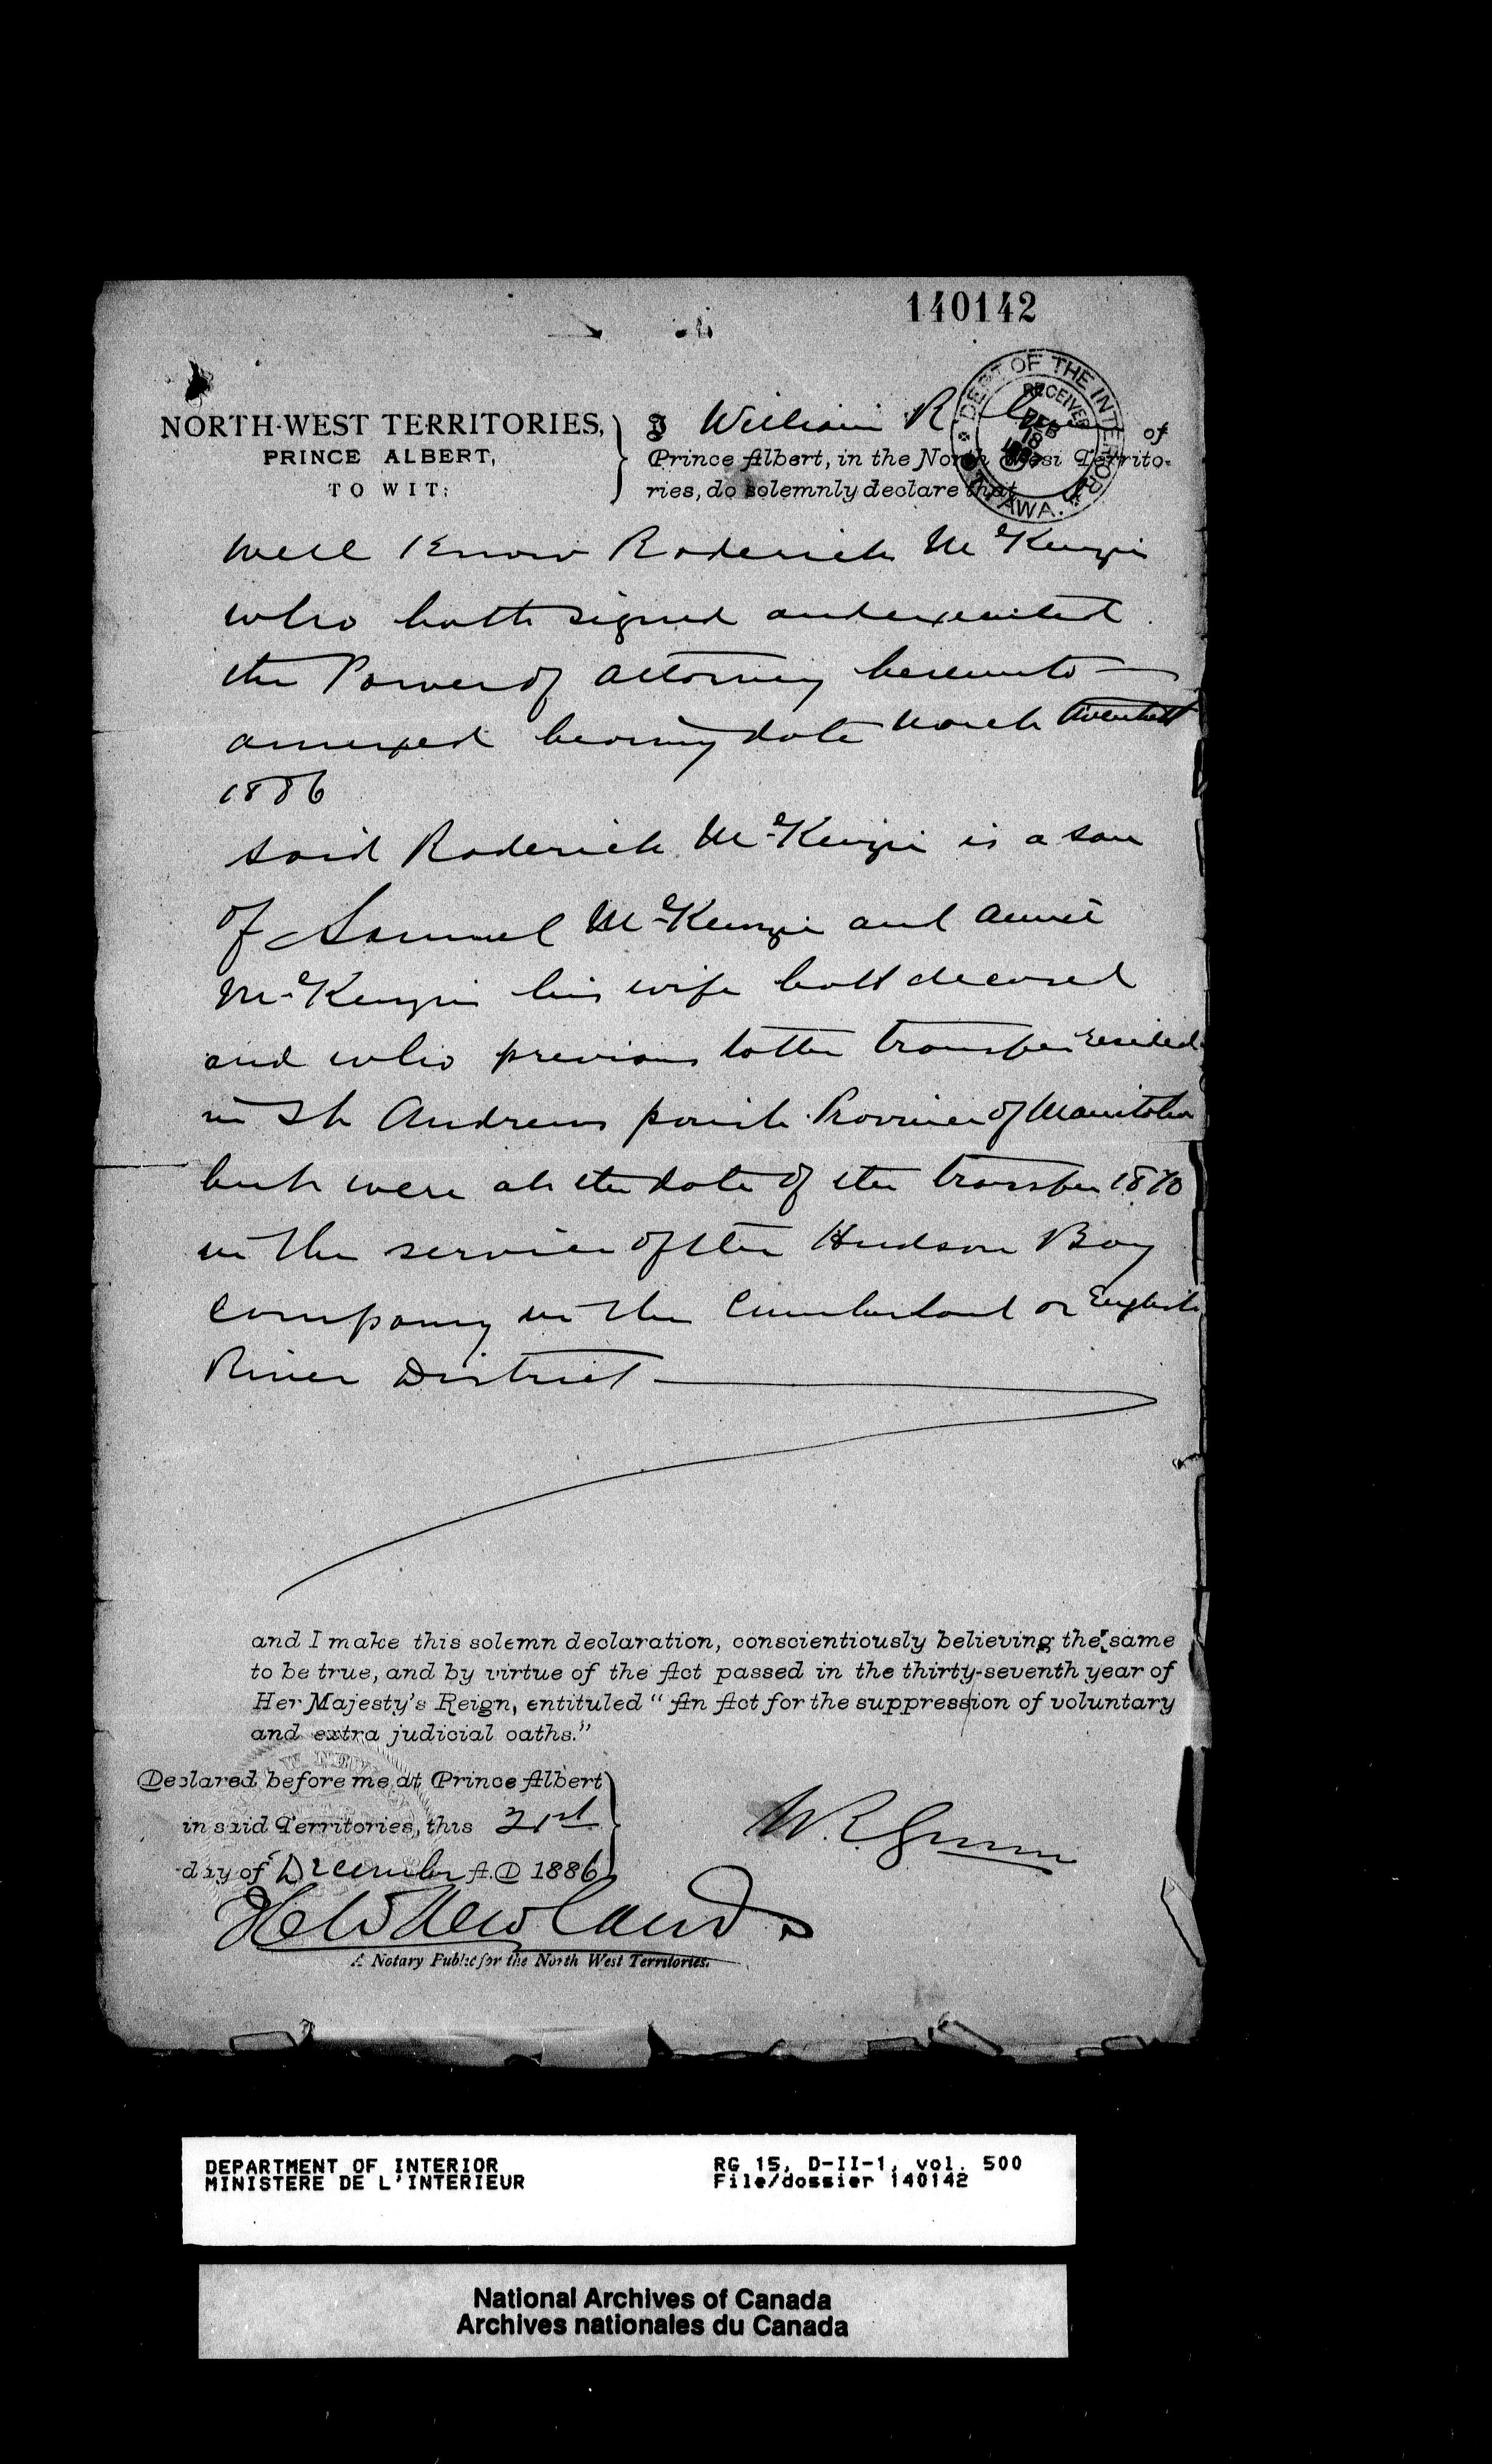 140142
DEPT OF THE INTERIOR
RECEIVED
FEB
18
OTTAWA.
NORTH-WEST TERRITORIES,
PRINCE ALBERT,
TO WIT:
I William R of
Prince Albert, in the North West Territo-
ries, do solemnly declare that
well know Roderick McKenzie
who hath signed and executed
the Power of Attorney hereunto
annexed bearing date March
1886
Said Roderick McKenzie is a son
of Samuel McKenzie and Annie
McKenzie his wife both deceased
and who previous to the transfer resided
in St Andrews parish Province of Manitoba
but were at the date of the transfer 1870
in the service of the Hudson Bay
Company in the Cumberland or English
River District
and I make this solemn declaration, conscientiously believing the same
to be true, and by virtue of the Act passed in the thirty-seventh year of
Her Majesty's Reign, entituled "An Act for the suppression of voluntary
and extra judicial oaths."
Declared before me at Prince Albert
in said Territories, this 21st
day of December A.D 1886
W. R. Gunn
H W Newlands
A Notary Public for the North West Territories.
DEPARTMENT OF INTERIOR
MINISTERE DE L'INTERIEUR
RG 15, D-II-1, vol. 500
File/dossier 140142
National Archives of Canada
Archives nationales du Canada